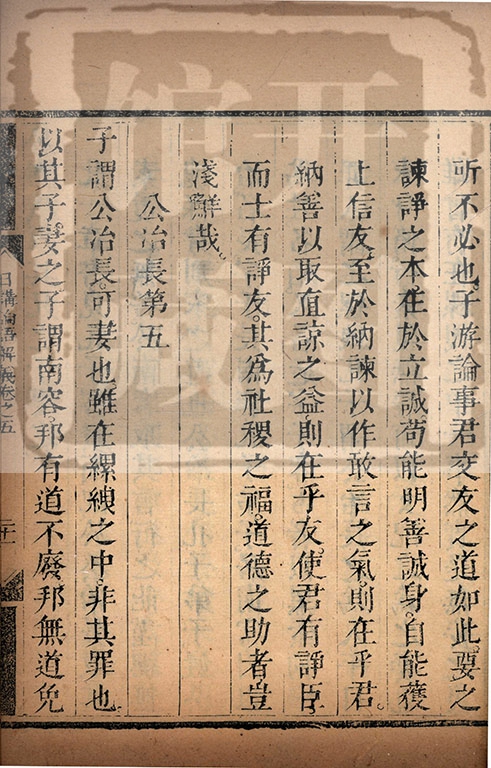 所不必也子游論事君交友之道如此要之
諫諍之本在於立誠苟能明善誠身自能獲
上信友至於納諫以作敢言之氣則在乎君
納善以取直諒之益則在乎友使君有諍臣
而士有諍友其為社稷之福道德之助者豈
淺鮮哉
公冶長第五
子謂公冶長可妻也雖在縲絏之中非其罪也
以其子妻之子謂南容邦有道不廢邦無道免
日講四書解義卷之五